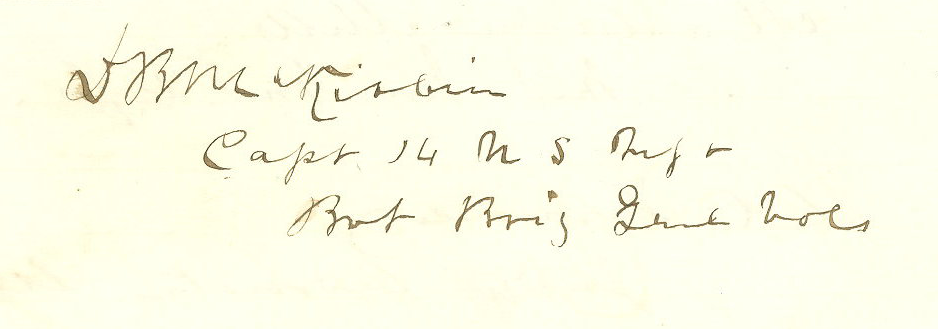 D B McKibbin
Capt 14 U S Infy
Bvt Brig Genl Vols